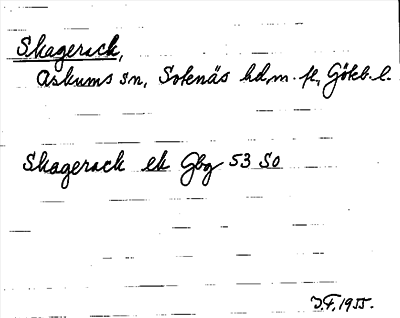 Skagerack,
Askums sn, Sotenäs hd, m. fl, Göteb. l.
Skagerack ek Gbg 53 So
J.F. 1955.